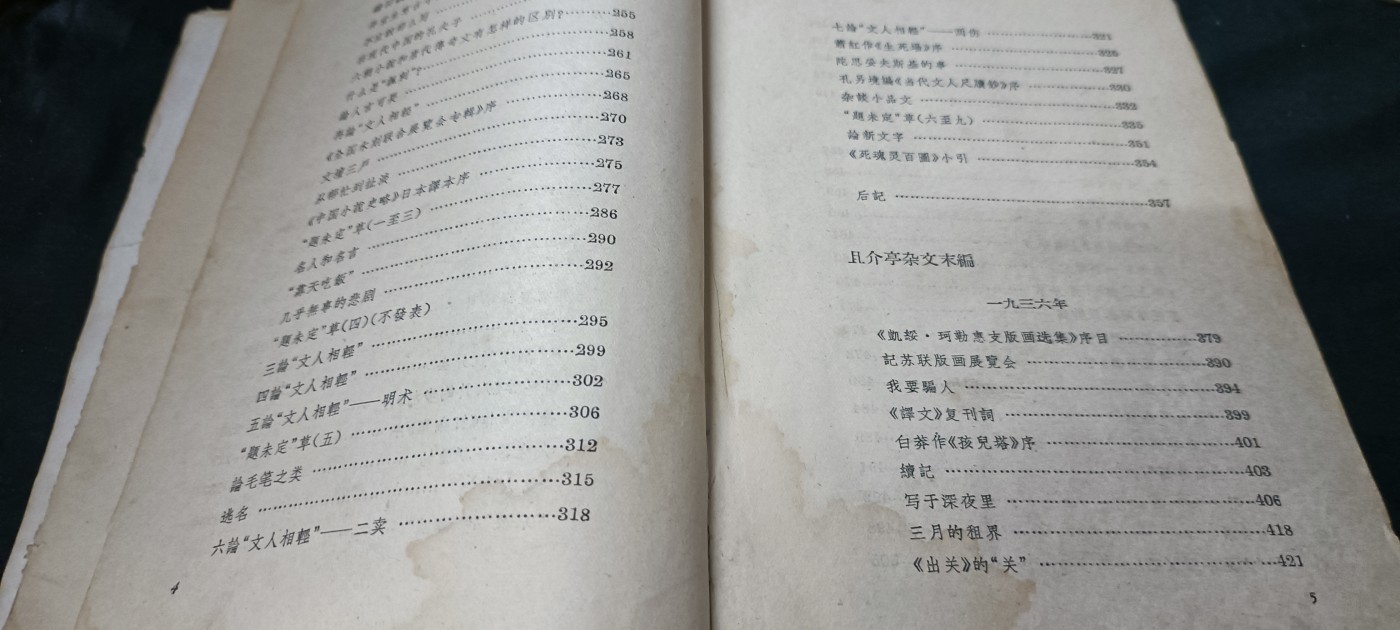 不应該那么写
在現代中国的孔夫子
六朝小說和唐代傳奇文有怎样的区别?……255
什么是“諷刺”?……258
論人言可畏……261
再論“文人相輕”……265
《全国木刻联合展覽会专輯》序……268
文壇三戶……270
从帮忙到扯淡……273
《中国小說史略》日本譯本序……275
“題未定”草(一至三)……277
名人和名言……286
“靠天吃飯”……290
几乎無事的悲剧……292
“題未定”草(四)(不發表)
三論“文人相輕”……295
四論“文人相輕”……299
五論“文人相輕”——明术……302
“題未定”草(五)……306
論毛笔之类……312
逃名……315
六論“文人相輕”——二卖……318
4
七論“文人相輕”——两伤……321
蕭紅作《生死場》序……325
陀思妥夫斯基的事……327
孔另境編《当代文人尺牘鈔》序……330
杂談小品文……332
“題未定”草(六至九)……335
論新文字……351
《死魂灵百圖》小引……354
后記……357
且介亭杂文末編
一九三六年
《凱綏·珂勒惠支版画选集》序目……379
記苏联版画展覽会……390
我要騙人……394
《譯文》复刊詞……399
白莽作《孩兒塔》序……401
續記……403
写于深夜里……406
三月的租界……418
《出关》的“关”……421
5